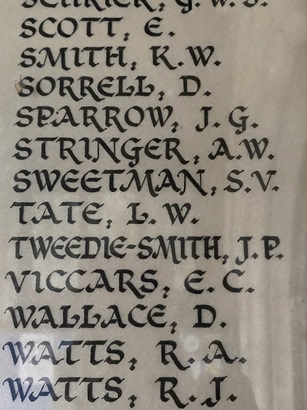 SCOTT, E.
SMITH, K.W.
SORRELL, D.
SPARROW, J.G.
STRINGER, A.W.
SWEETMAN, S.V.
TATE, L.W.
TWEEDIE-SMITH, J.P.
VICCARS, E.C.
WALLACE, D.
WATTS, R.A.
WATTS, R.J.